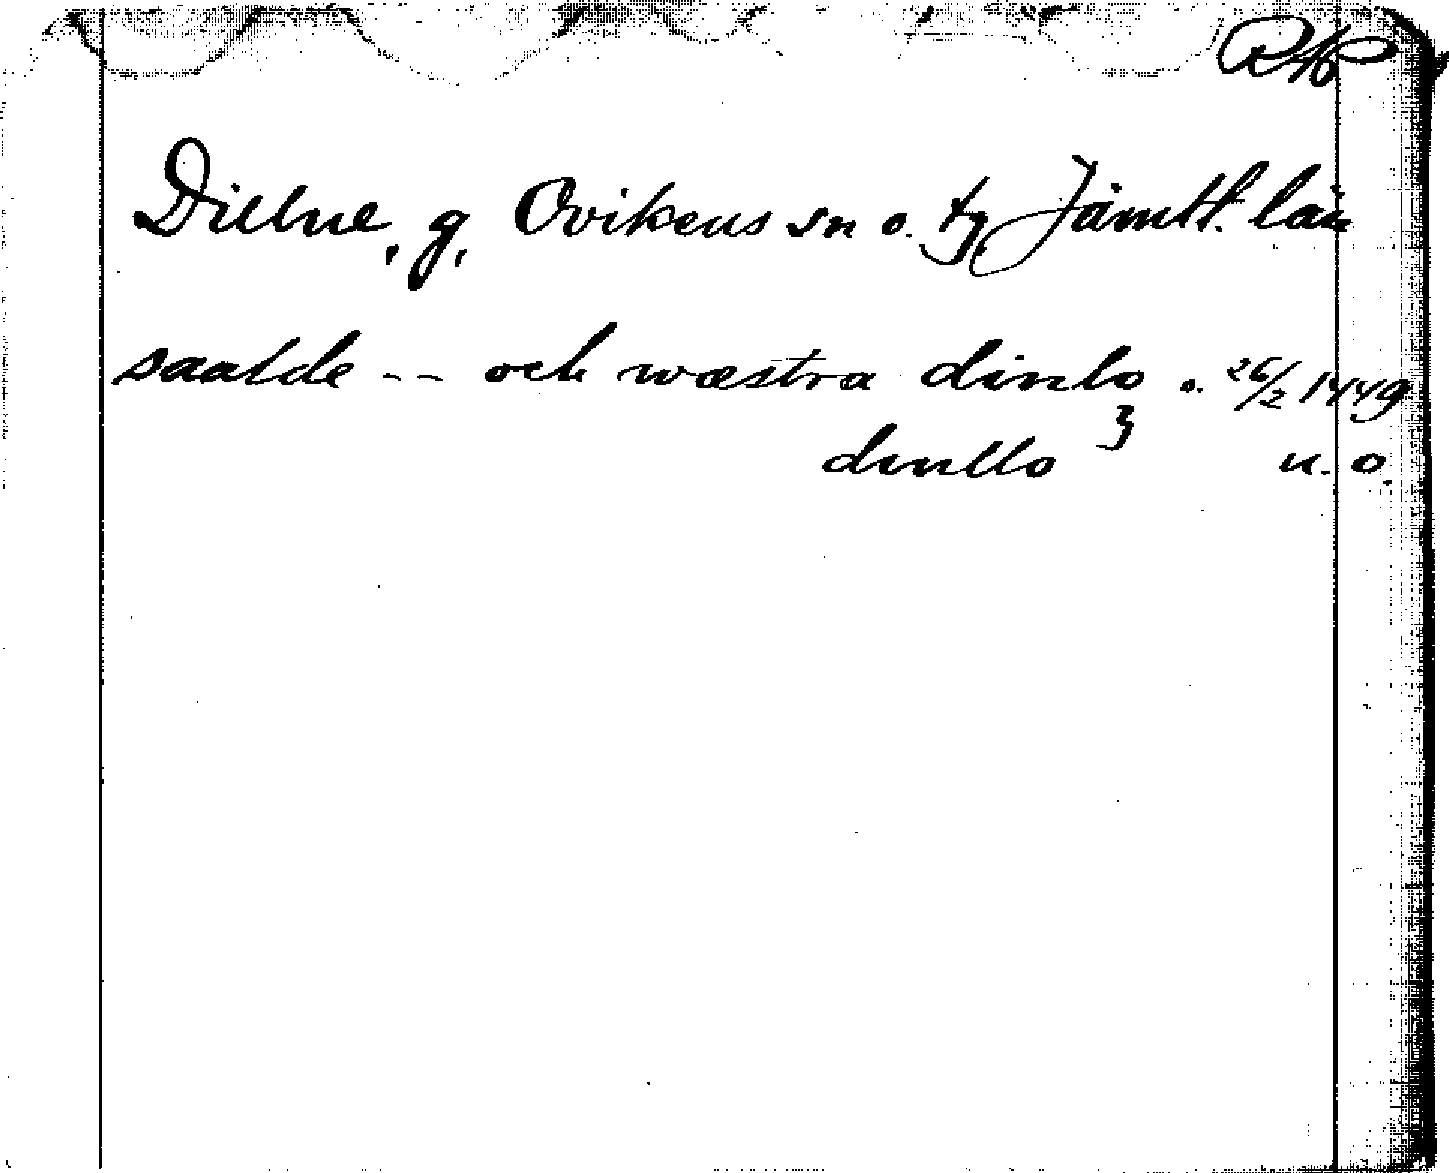 RAP
Dillne, g, Ovikens sn o. tg Jämtl. län
saalde -- och wæstra dinlo o. 26/2 1449
dinllo } u. o.